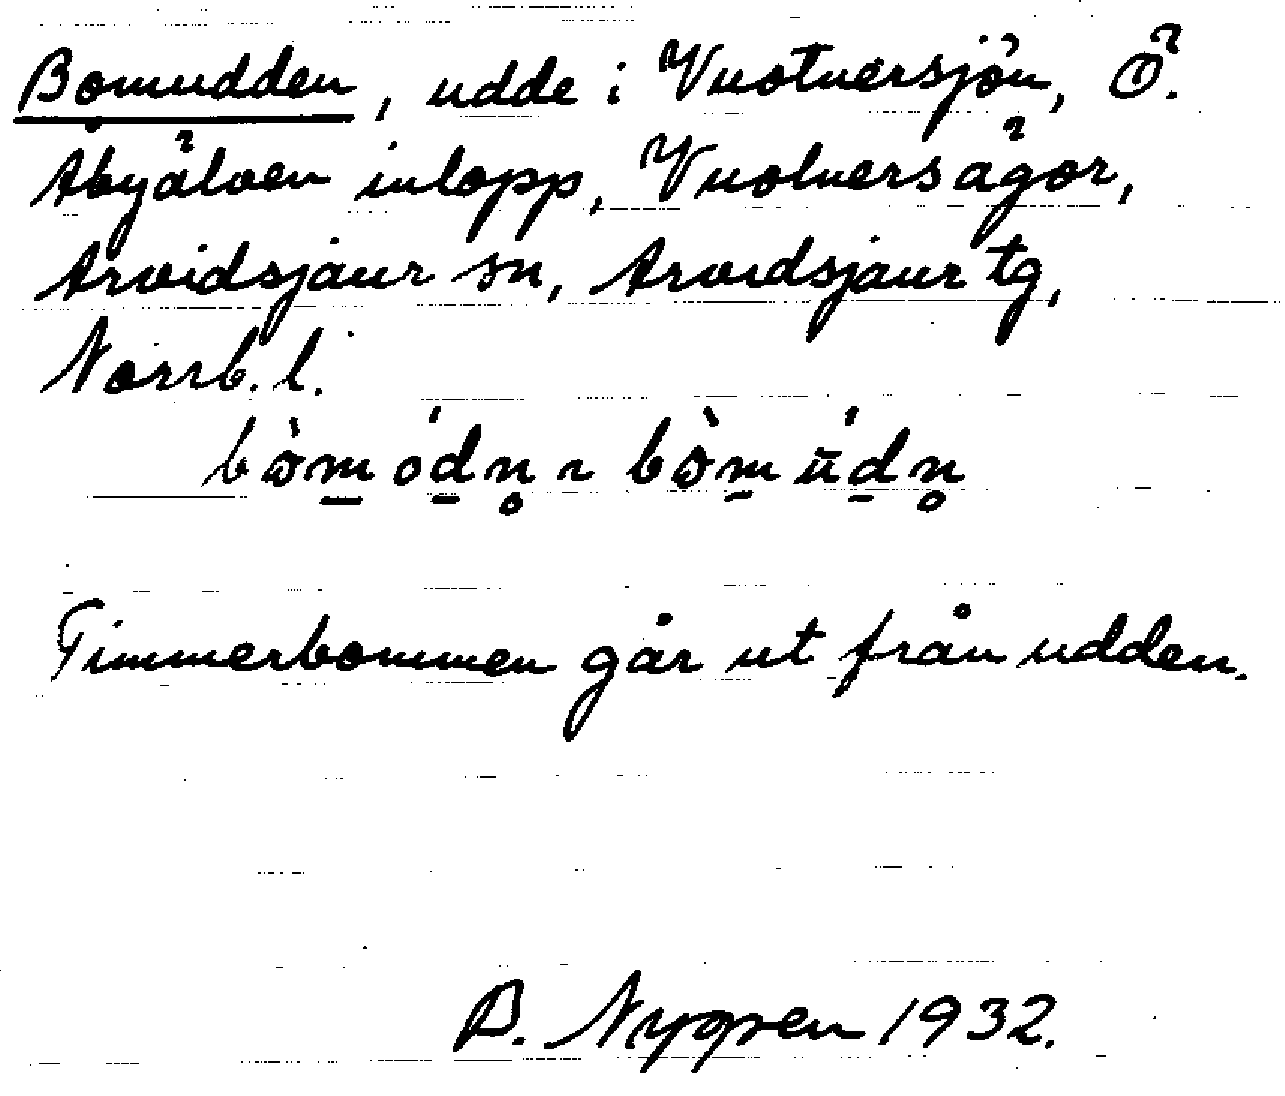 Bomudden, udde i Vuotnersjön, Ö.
Åbyälven inlopp, Vuolnersågor,
Arvidsjaur sn, Arvidsjaur tg,
Norrb. l.
Timmerbommen går ut från udden.
B. Nygren 1932.